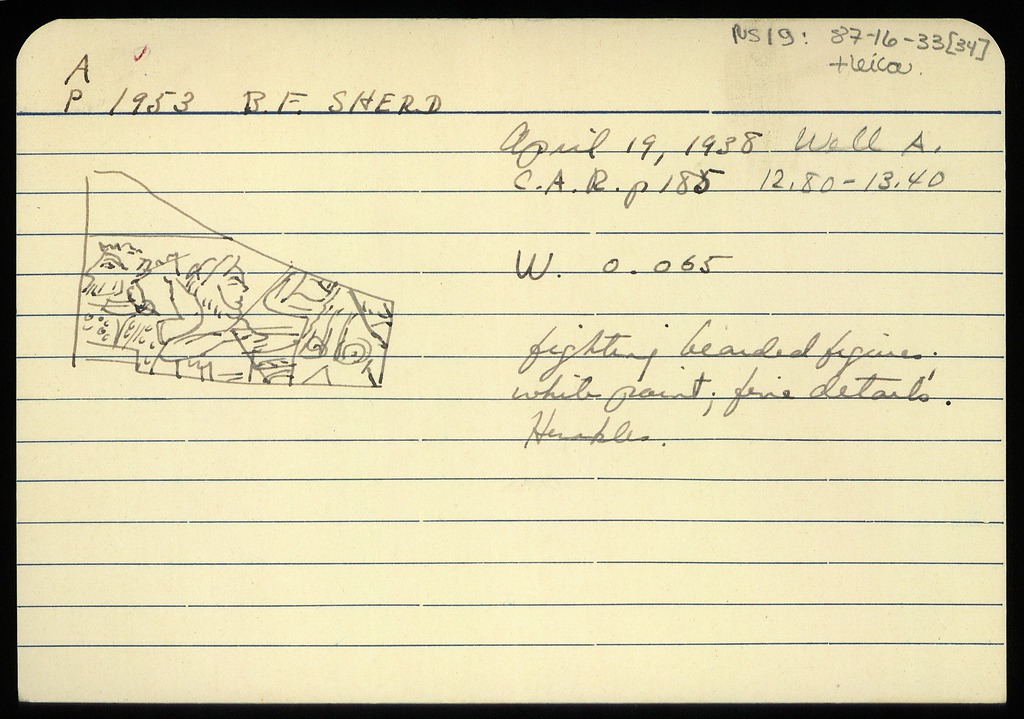 NS19: 87-16-33[34]
+Leica
A
P 1953 B.F. SHERD
April 19, 1938 Well A.
C.A.R. p 185 12.80-13.40
W. 0.065
fighting bearded figures.
white paint; fine details.
Herakles.